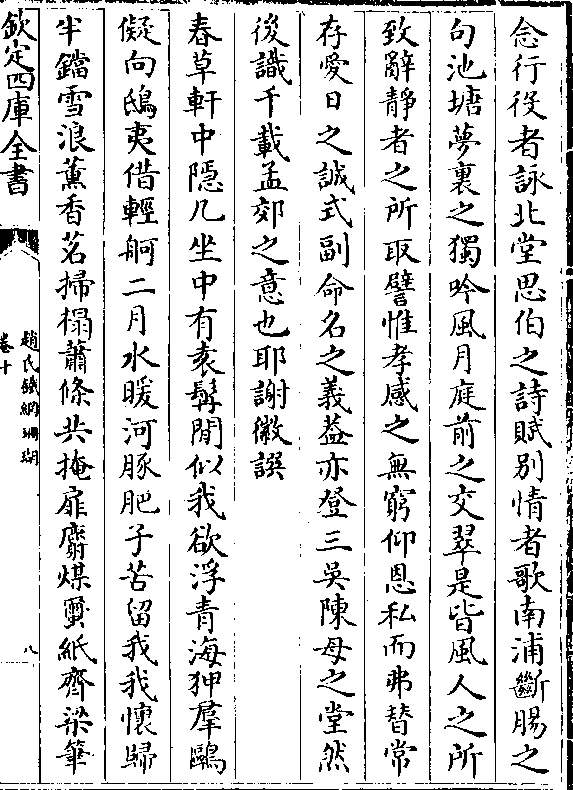 念行役者詠北堂思伯之詩賦别情者歌南浦斷腸之
句池塘夢裏之獨吟風月庭前之交翠是皆風人之所
致辭靜者之所取譬惟孝感之無窮仰恩私而弗替常
存愛日之誠式副命名之義益亦登三吳陳母之堂然
後識千載孟郊之意也耶謝徽譔
春草軒中隱几坐中有亥髯閒似我欲浮青海狎羣鷗
儗向鴟夷借輕舸二月水暖河豚肥子苦留我我懷歸
半鐺雪浪薰香茗掃榻蕭條共掩扉麝煤蠒紙齊梁筆
欽定四庫全書
趙氏鐵網珊瑚
卷十
八